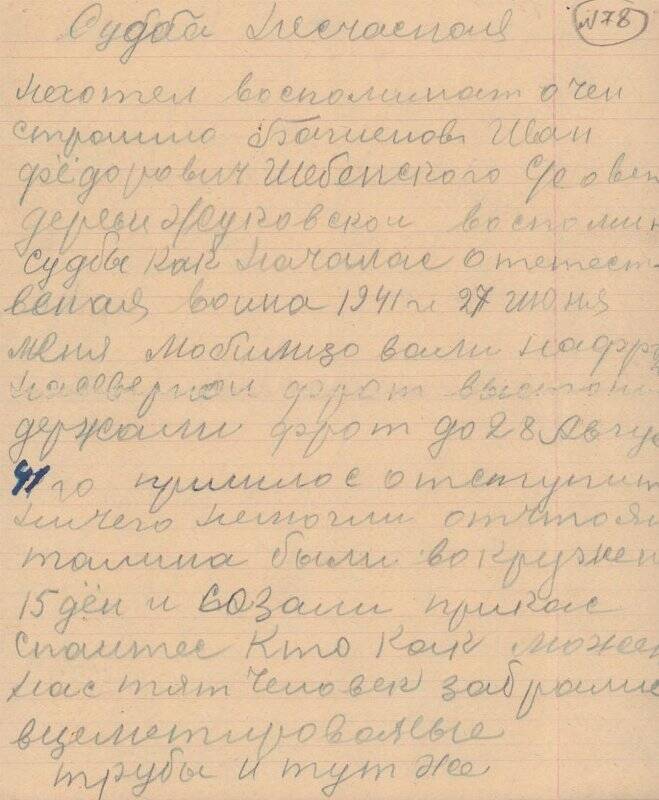 N78
Судба несчасная
нехотел воспоминат очен
страшно Баженов Иван
фёдорович Шебенского С/совет
деревьи Жуковской воспомин
судбы как началас отечест
веная воина 1941 г 27 июня
меня мобилизовали нафр
насеверной фронт
держали фрот до 28 Авгу
41 го пришлос отступит
ничего немогли отстоя
талина были вокружен
15 дён и созали прикас
спаитес Кто как може
нас пят человек забралис
вцеметированые
трубы и тут же